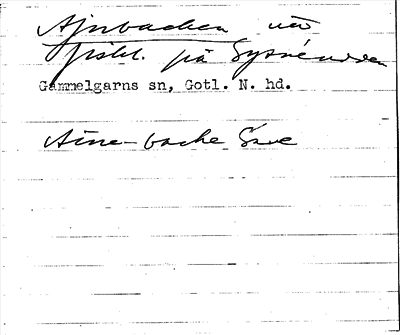 Ajnbacken vid
fiskl. på Sysneudden
Gammelgarns sn, Gotl. N. hd.
Aine-backe Säve